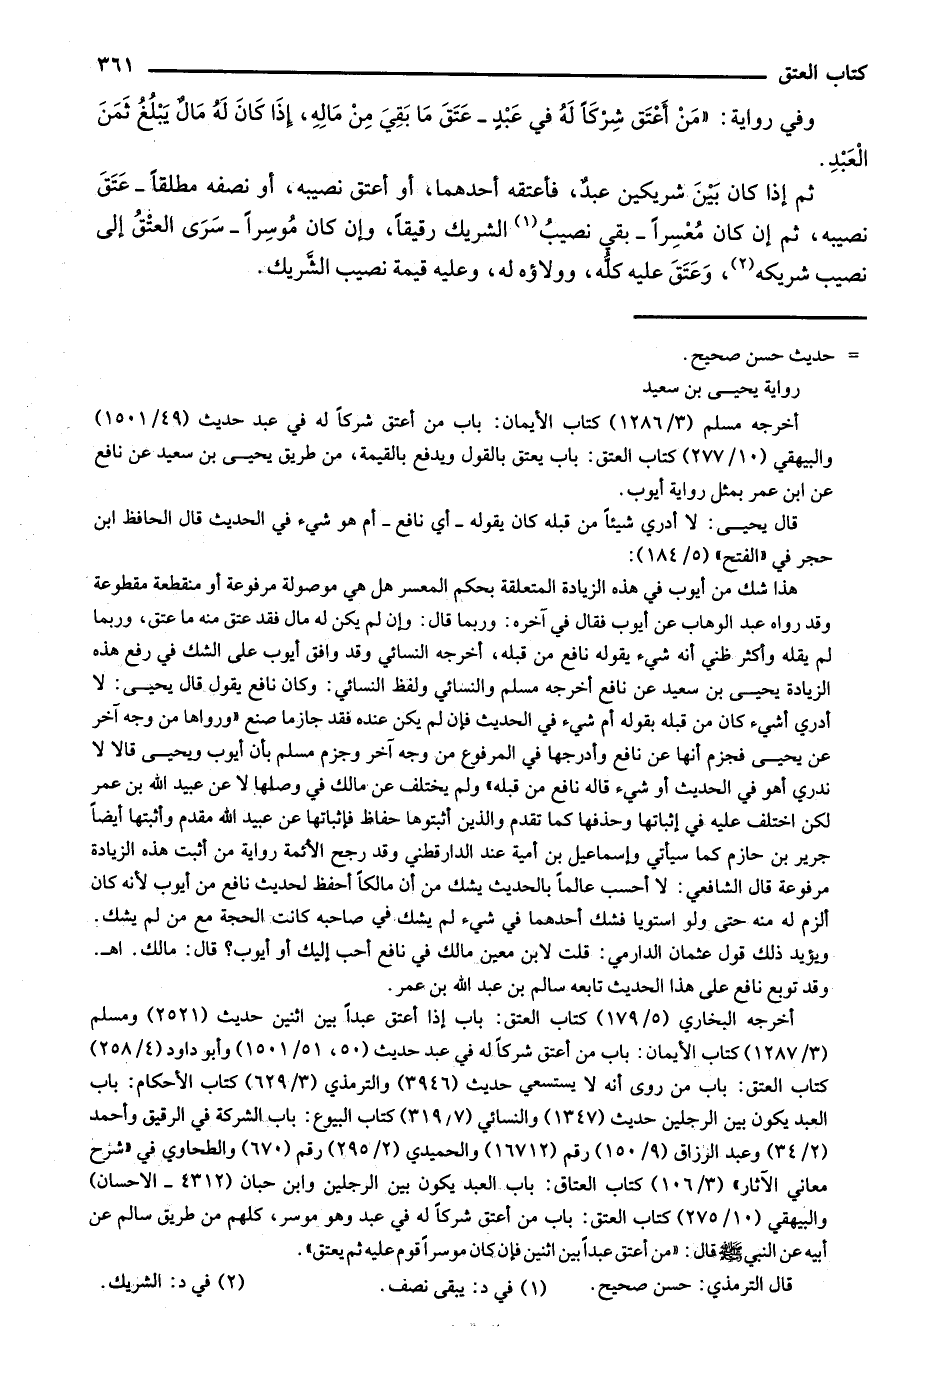 كتاب العتق ٣٦١
وفي رواية: «مَنْ أَعْتَق شِرْكَاً لَهُ في عَبْدٍ ـ عَتَقَ مَا بَقِيَ مِنْ مَالِهِ، إِذَا كَانَ لَهُ مَالٌ يَبْلُغُ ثَمَنَ
الْعَبْدِ.
ثم إذا كان بَيْنَ شريكين عبدٌ، فأعتقه أحدهما، أو أعتق نصيبه، أو نصفه مطلقاً ـ عَتَقَ
نصيبه، ثم إن كان مُعْسِراً ـ بقي نصيبُ(١) الشريك رقيقاً، وإن كان مُوسِراً ـ سَرَى العتْقُ إلى
نصيب شريكه(٢)، وَعَتَقَ عليه كلُّه، وولاؤه له، وعليه قيمة نصيب الشَّريك.
= حديث حسن صحيح.
رواية يحيـى بن سعيد
أخرجه مسلم (٣/ ١٢٨٦) كتاب الأيمان: باب من أعتق شركاً له في عبد حديث (٤٩/ ١٥٠١)
والبيهقي (١٠/ ٢٧٧) كتاب العتق: باب يعتق بالقول ويدفع بالقيمة، من طريق يحيـى بن سعيد عن نافع
عن ابن عمر بمثل رواية أيوب.
قال يحيـى: لا أدري شيئاً من قبله كان يقوله ـ أي نافع ـ أم هو شيء في الحديث قال الحافظ ابن
حجر في «الفتح» (٥/ ١٨٤):
هذا شك من أيوب في هذه الزيادة المتعلقة بحكم المعسر هل هي موصولة مرفوعة أو منقطعة مقطوعة
وقد رواه عبد الوهاب عن أيوب فقال في آخره: وربما قال: وإن لم يكن له مال فقد عتق منه ما عتق، وربما
لم يقله وأكثر ظني أنه شيء يقوله نافع من قبله، أخرجه النسائي وقد وافق أيوب على الشك في رفع هذه
الزيادة يحيـى بن سعيد عن نافع أخرجه مسلم والنسائي ولفظ النسائي: وكان نافع يقول قال يحيـى: لا
أدري أشيء كان من قبله بقوله أم شيء في الحديث فإن لم يكن عنده فقد جازما صنع «ورواها من وجه آخر
عن يحيـى فجزم أنها عن نافع وأدرجها في المرفوع من وجه آخر وجزم مسلم بأن أيوب ويحيـى قالا لا
ندري أهو في الحديث أو شيء قاله نافع من قبله» ولم يختلف عن مالك في وصلها لا عن عبيد الله بن عمر
لكن اختلف عليه في إثباتها وحذفها كما تقدم والذين أثبتوها حفاظ فإثباتها عن عبيد الله مقدم وأثبتها أيضاً
جرير بن حازم كما سيأتي وإسماعيل بن أمية عند الدارقطني وقد رجح الأئمة رواية من أثبت هذه الزيادة
مرفوعة قال الشافعي: لا أحسب عالماً بالحديث يشك من أن مالكاً أحفظ لحديث نافع من أيوب لأنه كان
ألزم له منه حتى ولو استويا فشك أحدهما في شيء لم يشك في صاحبه كانت الحجة مع من لم يشك.
ويؤيد ذلك قول عثمان الدارمي: قلت لابن معين مالك في نافع أحب إليك أو أيوب؟ قال: مالك. اهـ.
وقد توبع نافع على هذا الحديث تابعه سالم بن عبد الله بن عمر.
أخرجه البخاري (٥/ ١٧٩) كتاب العتق: باب إذا أعتق عبداً بين اثنين حديث (٢٥٢١) ومسلم
(٣/ ١٢٨٧) كتاب الأيمان: باب من أعتق شركاً له في عبد حديث (٥٠، ٥١/ ١٥٠١) وأبو داود (٤/ ٢٥٨)
كتاب العتق: باب من روى أنه لا يستسعي حديث (٣٩٤٦) والترمذي (٣/ ٦٢٩) كتاب الأحكام: باب
العبد يكون بين الرجلين حديث (١٣٤٧) والنسائي (٧/ ٣١٩) كتاب البيوع: باب الشركة في الرقيق وأحمد
(٢/ ٣٤) وعبد الرزاق (٩/ ١٥٠) رقم (١٦٧١٢) والحميدي (٢/ ٢٩٥) رقم (٦٧٠) والطحاوي في «شرح
معاني الآثار» (٣/ ١٠٦) كتاب العتاق: باب العبد يكون بين الرجلين وابن حبان (٤٣١٢ ـ الاحسان)
والبيهقي (١٠/ ٢٧٥) كتاب العتق: باب من أعتق شركاً له في عبد وهو موسر، كلهم من طريق سالم عن
أبيه عن النبي ﷺ قال: «من أعتق عبداً بين اثنين فإن كان موسراً قوم عليه ثم يعتق».
قال الترمذي: حسن صحيح. (١) في د: يبقى نصف. (٢) في د: الشريك.